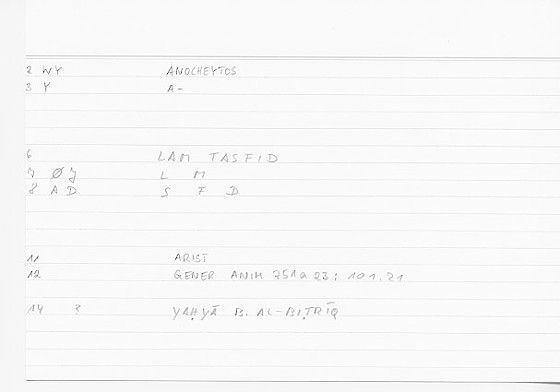 2 WY ANOCHEYTOS
3 Y A-
6 LAM TASFID
7 Ø J L M
8 A D S F D
11 ARIST
12 GENER ANIM 751a 23 : 101.21
14 ? YAḤYĀ B. AL-BIṬRĪQ